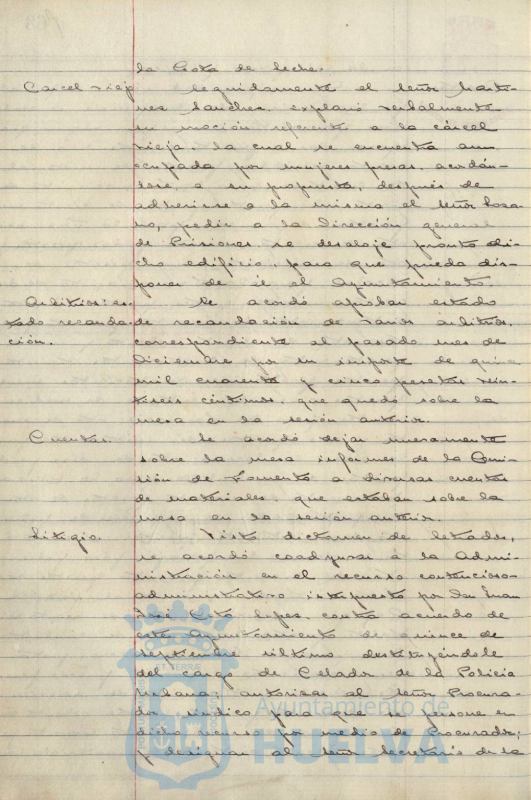 la Gota de leche.
Carcel vieja Seguidamente el señor Martí-
nez Sanchez, explanó verbalmente
su moción referente a la cárcel
vieja, la cual se encuentra aun
ocupada por mujeres presas, acordán-
dose, a su propuesta, después de
adherirse a la misma el señor Loza-
no, pedir a la Dirección general
de Prisiones, se desaloje pronto di-
cho edificio, para que pueda dis-
poner de él el Ayuntamiento.
Arbitrios: es- Se acordó aprobar estado
tado recauda- de recaudación de varios arbitrios,
ción. correspondiente al pasado mes de
Diciembre por un importe de quin
mil cuarenta y cinco pesetas vein-
tiseis céntimos, que quedó sobre la
mesa en la sesión anterior.
Cuentas. Se acordó dejar nuevamente
sobre la mesa informes de la Comi-
sión de Fomento a diversas cuentas
de materiales, que estaban sobre la
mesa en la sesión anterior.
Litigio. Visto dictamen de Letrados,
se acordó coadyuvar a la Admi-
nistración en el recurso contencioso-
administrativo interpuesto por Don Juan
José Lopez, contra acuerdo de
este Ayuntamiento de quince de
septiembre último destituyéndole
del cargo de Celador de la Policia
Urbana; autorizar al señor Procura-
dor síndico para que se persone en
dicho recurso por medio de Procurador;
y designar al señor Secretario de la
Ayuntamiento de
HUELVA